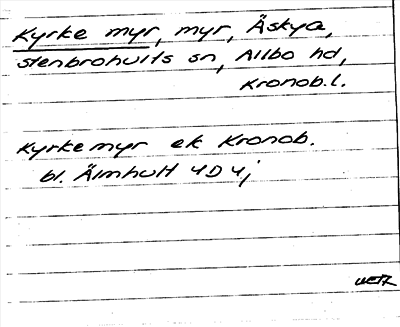 Kyrke myr, myr, Äskya,
Stenbrohults sn, Allbo hd,
Kronob.l.
Kyrkemyr ek Kronob.
bl. Älmhult 4D 4j